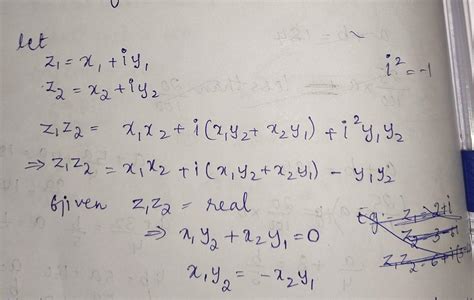 let
z₁ = x₁ + iy₁
z₂ = x₂ + iy₂
i² = -1
z₁z₂ = x₁x₂ + i(x₁y₂ + x₂y₁) + i²y₁y₂
⇒ z₁z₂ = x₁x₂ + i(x₁y₂ + x₂y₁) - y₁y₂
Given z₁z₂ = real
⇒ x₁y₂ + x₂y₁ = 0
x₁y₂ = -x₂y₁
Eg:- z₁ = 2+i